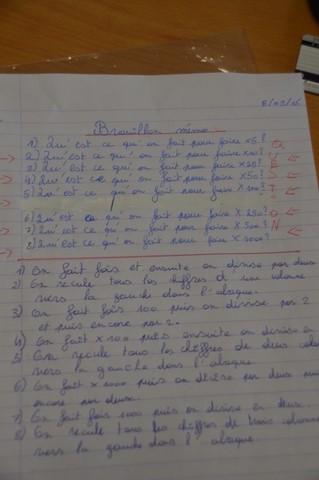 8/09/15
Brouillon mémo
1) Qu'est ce qu' on fait pour faire x5? Q
2) Qu'est ce qu' on fait pour faire x10? U
3) Qu'est ce qu' on fait pour faire x25? E
4) Qu'est ce que on fait pour faire x50? S
5) Qu'est ce qu' on fait pour faire x100? T
6) Qu'est ce qu' on fait pour faire x250? O
7) Qu'est ce qu' on fait pour faire x500? N
8) Qu'est ce qu' on fait pour faire x1000?
1) On fait fois et ensuite on divise par deux
2) On recule tous les chiffres d' une colonne
vers la gauche dans l' abaque.
3) On fait fois 100 puis on divise par 2
et puis encore par 2.
4) On fait x 100 puis ensuite on divise en
5) On recule tous les chiffres de deux
vers la gauche dans l' abaque
6) On fait x 1000 puis on divise par deux puis
encore par deux.
7) On fait fois 1000 puis on divise en deux...
8) On recule tous les chiffres de trois
vers la gauche dans l' abaque